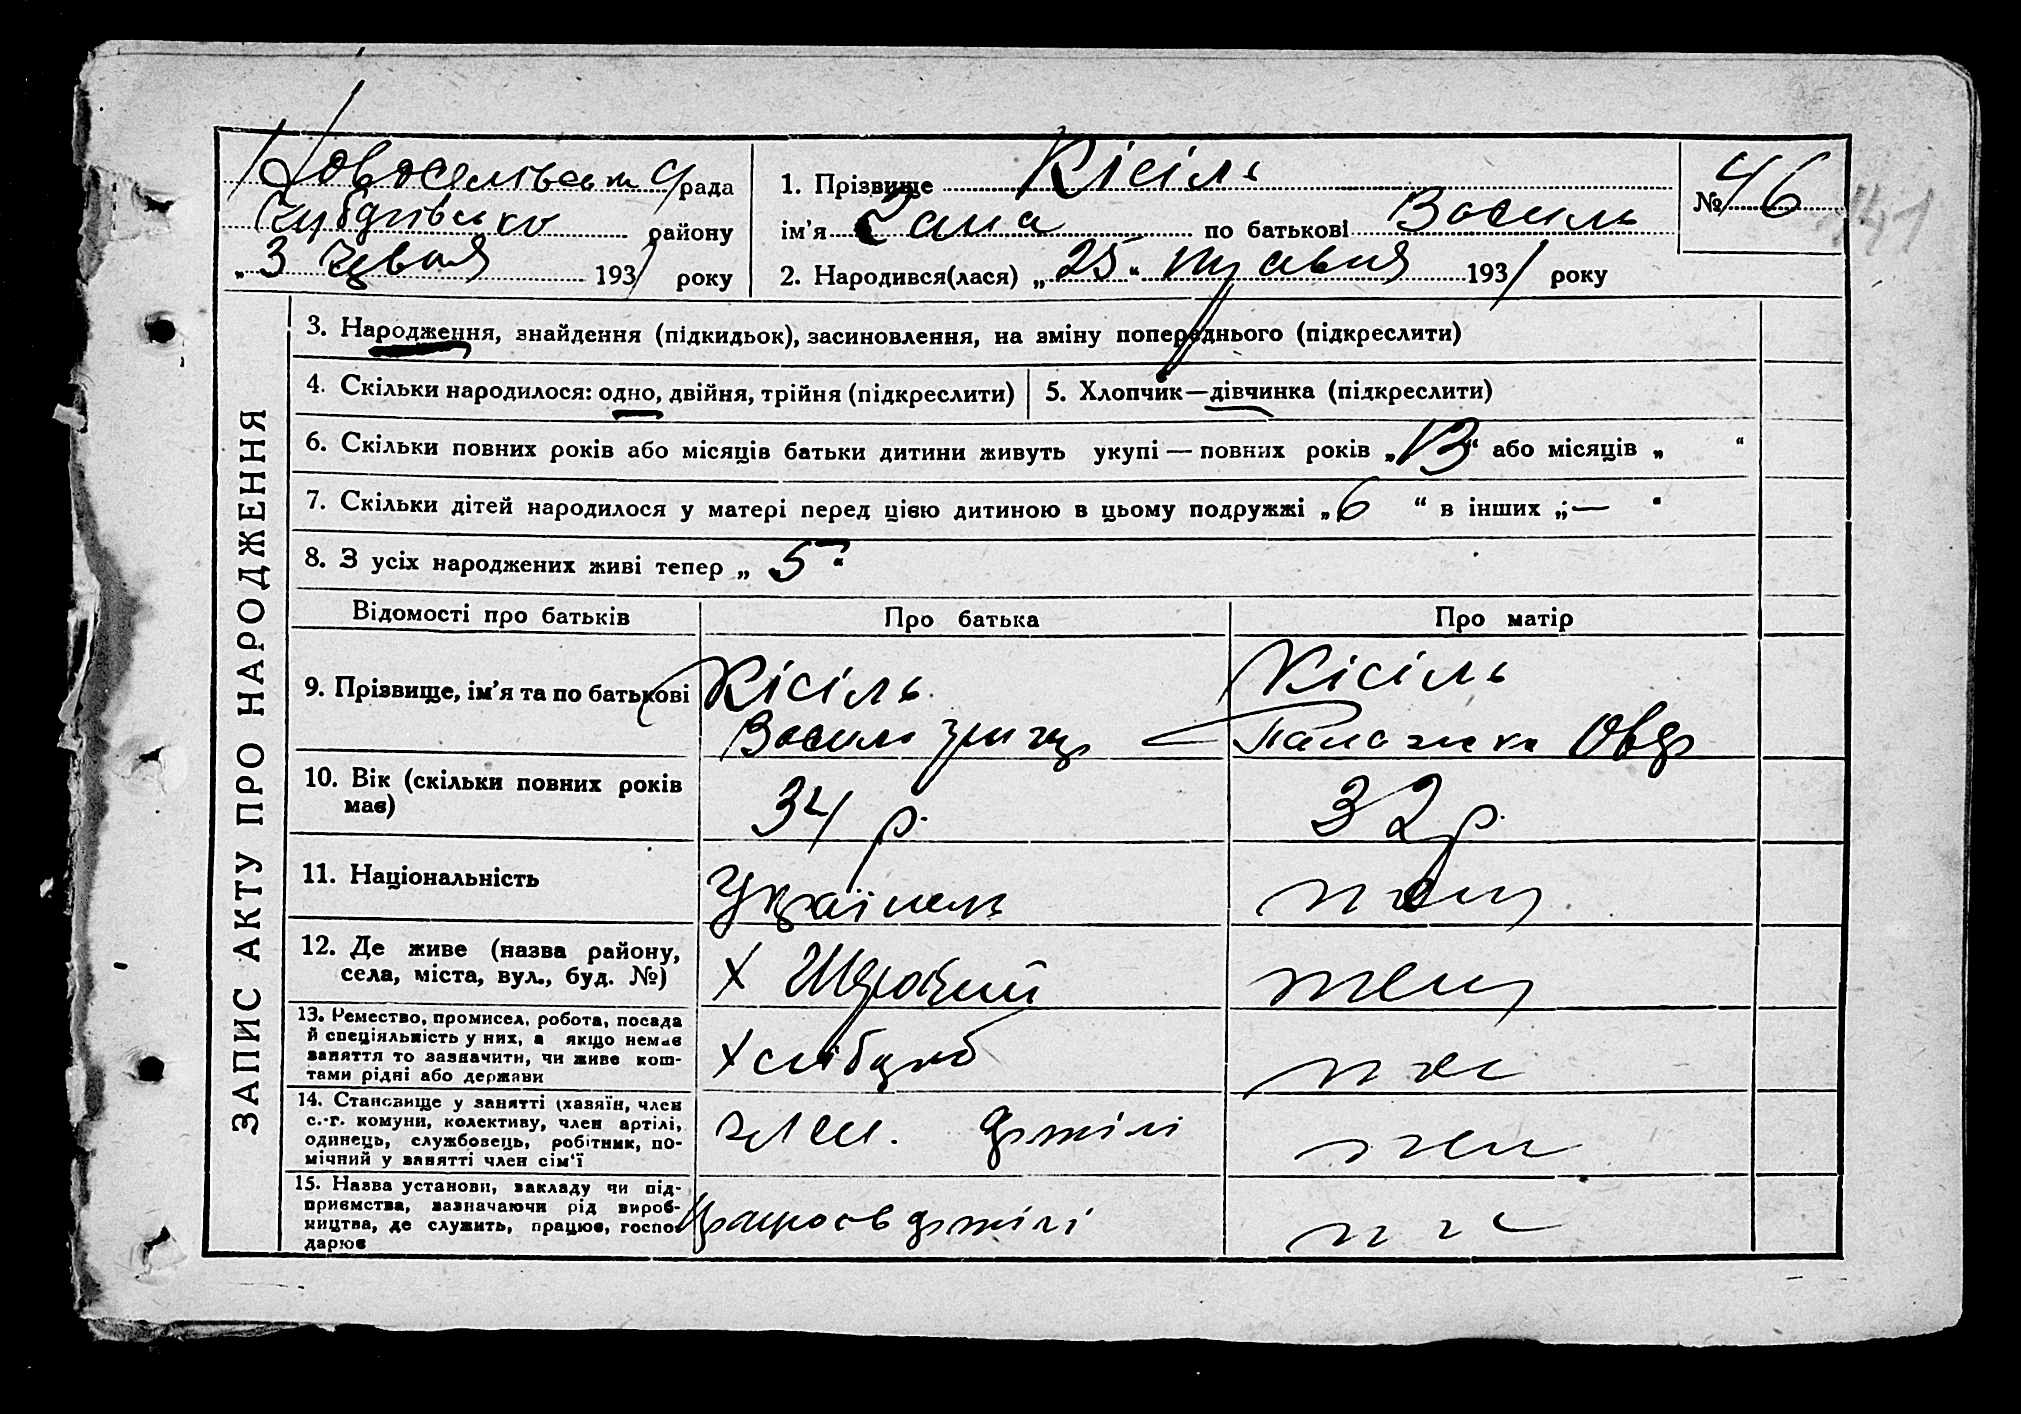 Новоселівська рада
району
„3 червня 1931 року
1. Прізвище Кісіль
ім'я Гана по батькові Василь
№ 46
141
2. Народився(лася) „25“ травня 1931 року
ЗАПИС АКТУ ПРО НАРОДЖЕННЯ
3. Народження, знайдення (підкидьок), засиновлення, на зміну попереднього (підкреслити)
4. Скільки народилося: одно, двійня, трійня (підкреслити)
5. Хлопчик—дівчинка (підкреслити)
6. Скільки повних років або місяців батьки дитини живуть укупі — повних років „13“ або місяців „ “
7. Скільки дітей народилося у матері перед цією дитиною в цьому подружжі „6 “ в інших „— “
8. З усіх народжених живі тепер „ 5 “
Відомості про батьків
Про батька
Про матір
9. Прізвище, ім'я та по батькові
Кісіль
Василь Гриц
Кісіль
Палажка Овд
10. Вік (скільки повних років
має)
34 р.
32 р.
11. Національність
Українець
12. Де живе (назва району,
села, міста, вул., буд. №)
х
13. Ремество, промисел, робота, посада
й спеціяльність у них, а якщо немає
заняття то зазначити, чи живе кош-
тами рідні або держави
Хлібороб
14. Становище у занятті (хазяїн, член
с.-г. комуни, колективу, член артілі,
одинець, службовець, робітник, по-
мічний у занятті член сім'ї
член артілі
15. Назва установи, закладу чи під-
приємства, зазначаючи рід вироб-
ництва, де служить, працює, госпо-
дарює
артілі